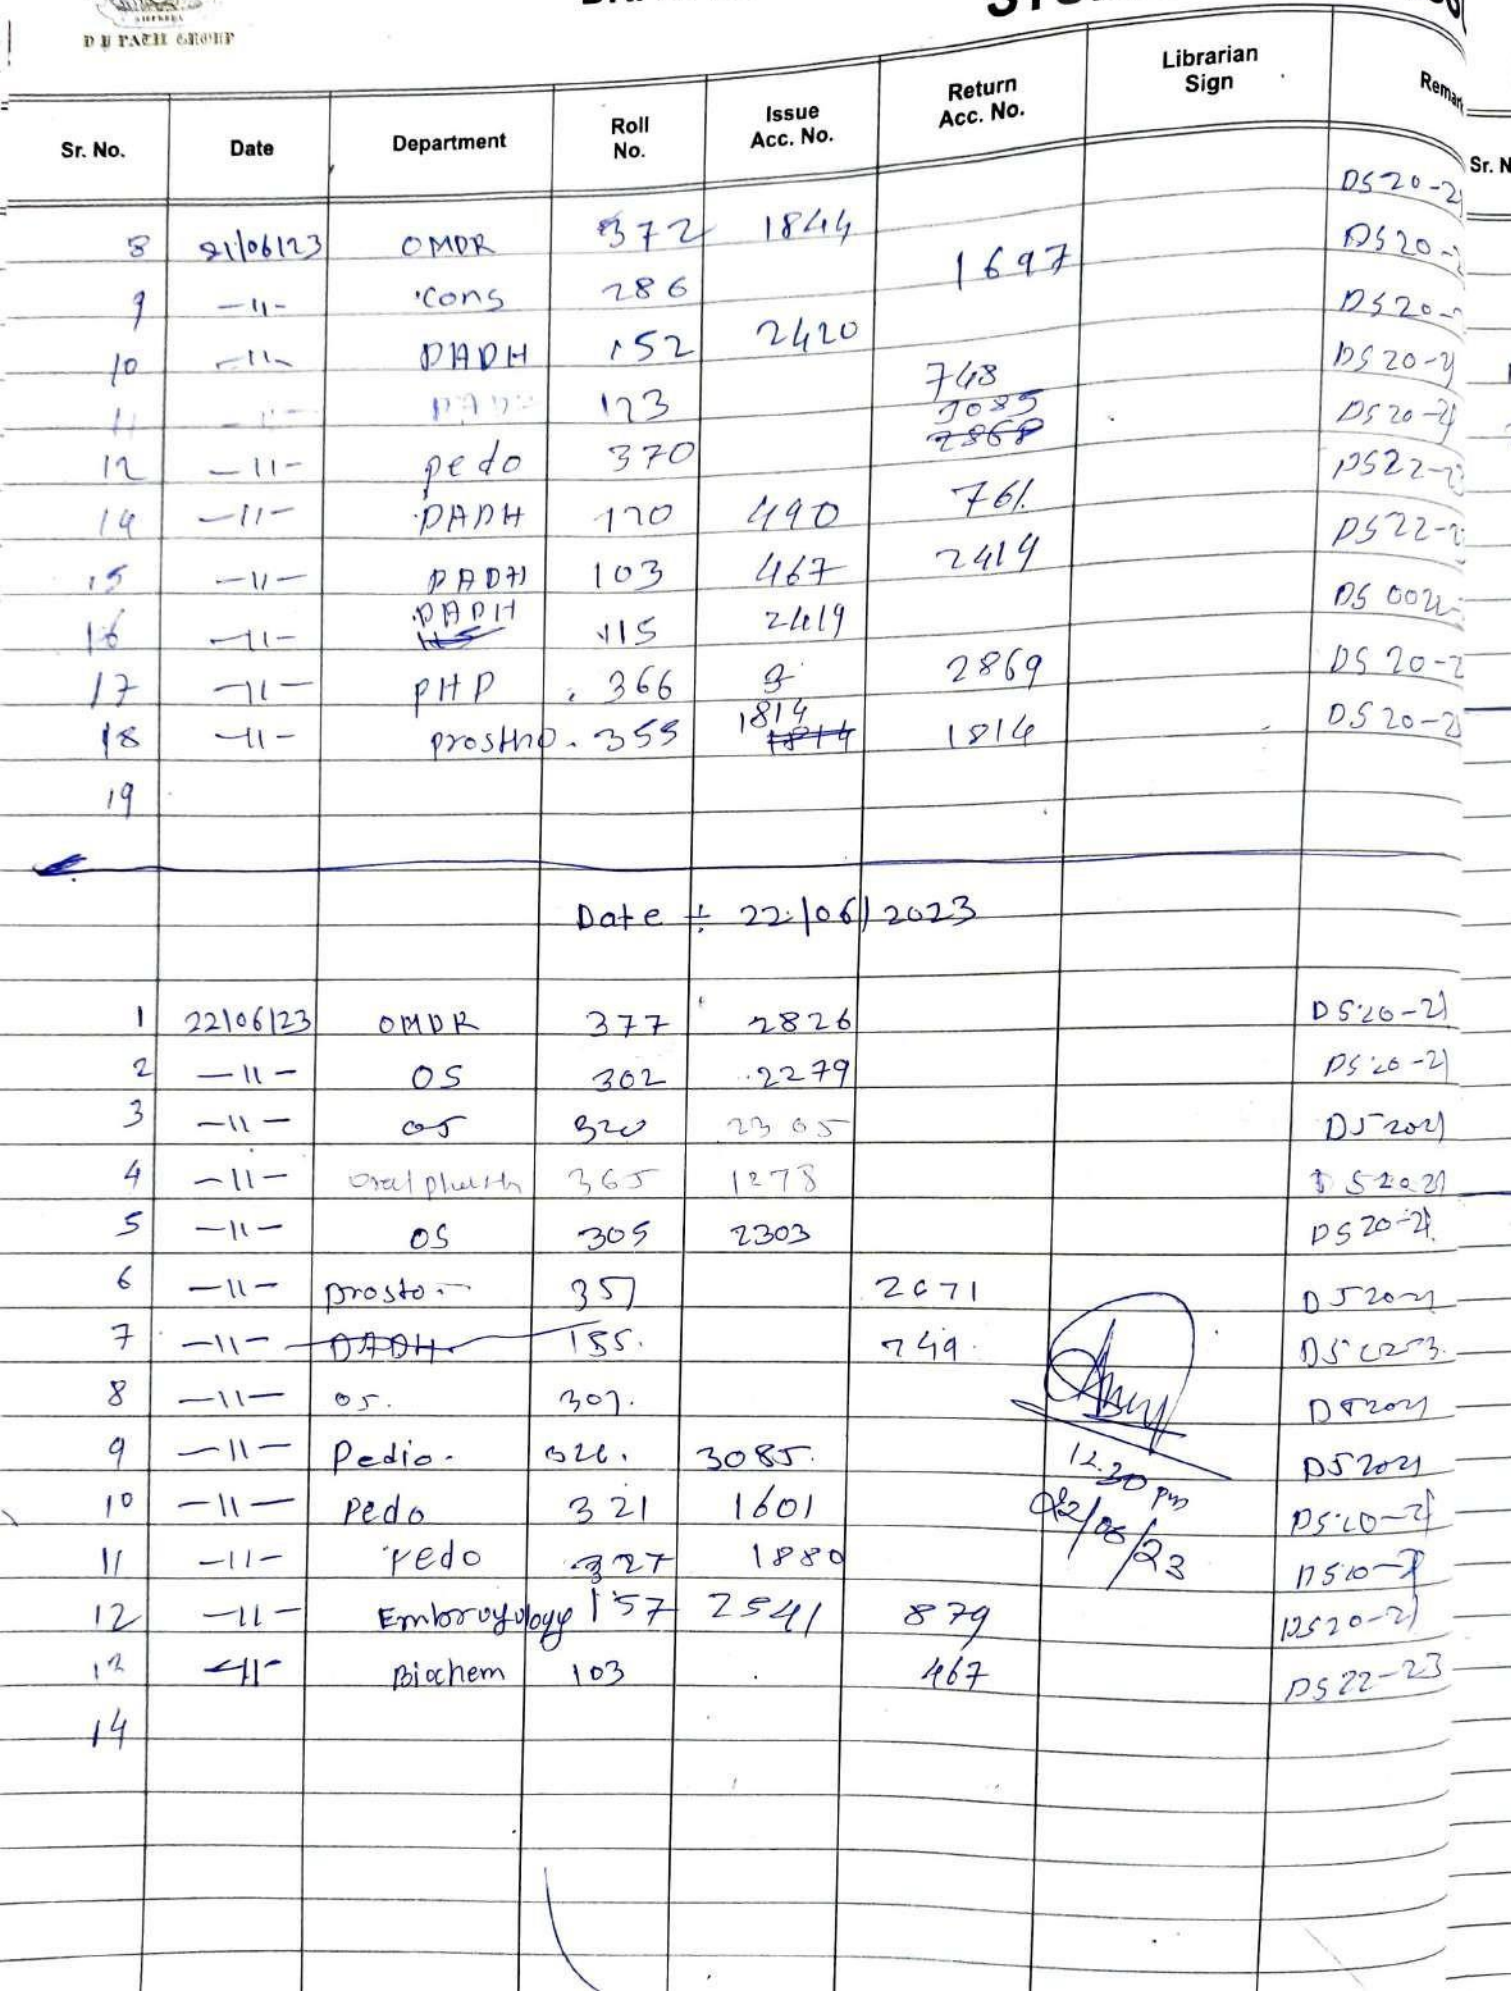 D Y PATIL GROUP
Sr. No. Date Department Roll No. Issue Acc. No. Return Acc. No. Librarian Sign Remar
8 21/06/23 OMDR 372 1844 DS 20-2
9 -11- Cons 286 1697 DS 20-
10 -11- DADH 152 2420 DS 20-
11 123 748 DS 20-2
12 -11- pedo 370 3085 2868 DS 20-2
14 -11- DADH 120 490 761 DS 22-2
15 -11- DADH 103 467 2419 DS 22-2
16 -11- DADH 115 2419 DS
17 -11- PHD 366 2869 DS 20-2
18 -11- prostho. 355 1814 1814 1814 DS 20-2
19
Date : 22/06/2023
1 22/06/23 OMDR 377 2826 DS 20-21
2 -11- OS 302 2279 DS 20-21
3 -11- OS 320 2305 DS 2021
4 -11- Oral 365 1278 DS 2021
5 -11- OS 305 2303 DS 20-21
6 -11- prosto. 357 2671 DS 2021
7 -11- DADH 155. 749. DS
8 -11- OS. 307. DS 2021
9 -11- Pedio. 326. 3085. DS 2021
10 -11- Pedo 321 1601 DS 20-21
11 -11- Pedo 327 1880 DS
12 -11- Embroyology 157 2541 879 DS 20-21
13 -11- Biochem 103 467 DS 22-23
14
12.30 pm
Sr. N